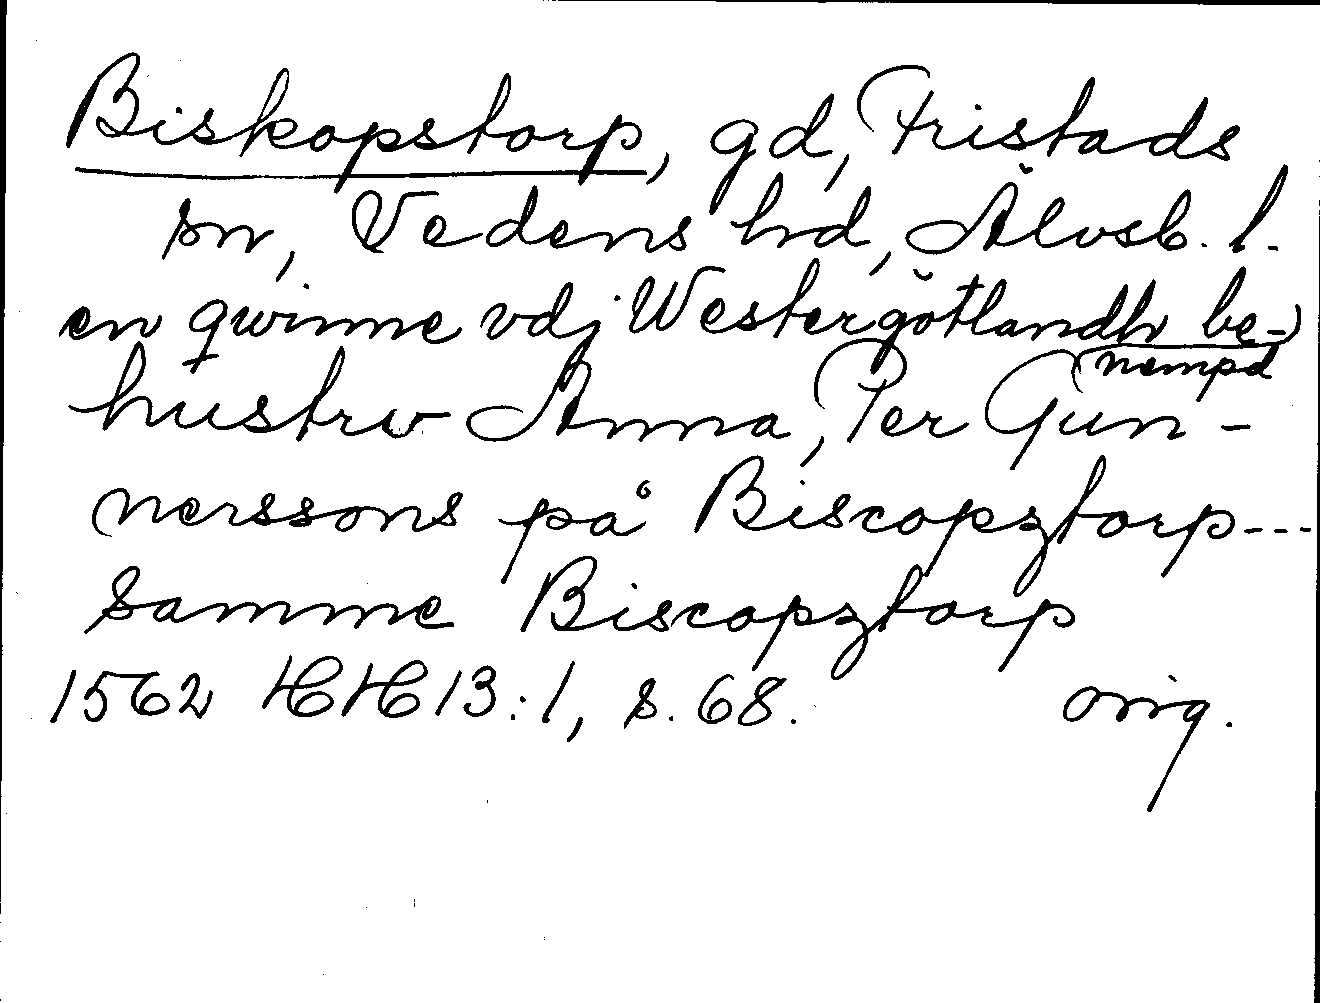 Biskopstorp, gd, Fristads
sn, Vedens hd, Älvsb. l.
en qwinne vdj Westergötlandh be-
nempd
hustrv Anna, Per Gun-
nerssons på Biscopztorp---
samme Biscopztorp
1562 HH 13:1, s. 68. orig.